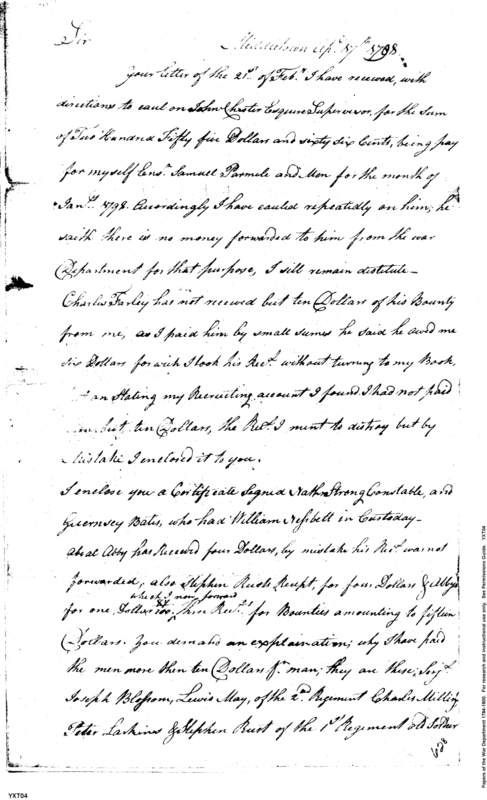 Sir
Middletown Apl. 17th 1798.
Your letter of the 21st. of Feby. I have received, with
directions to caul on John Chester Esquire Supervisor, for the sum
of Two Hundred Fifty five Dollars and sixty six Cents, being pay
for myself Ensn. Samuel Parmele and Men for the month of
Jany. 1798. Accordingly I have cauled repeatedly on him; he
saith there is no money forwarded to him from the war
Department for that purpose, I still remain distitute—
Charles Farley has not received but ten Dollars of his Bounty
from me, as I paid him by small sumes he said he owed me
six Dollars for wich I took his Rect. without turning to my Book,
an Stating my Recruiting account I found I had not paid
but ten Dollars, the Rect. I ment to distroy but by
Mistake I enclosed it to you.
I enclose you a Certificate Signed Nathn Strong Constable, and
Guernsey Bates, who had William Nesbell in Custoday—
Abeal Abby has Received four Dollars, by mistake his Rect. was not
forwarded, also Stephen Rusts Recept, for four Dollars & Abbys
which I now forward
for one Dollar three Rects. for Bounties amounting to fifteen
Dollars. You demand an explaination; why I have paid
the men more then ten Dollars pr. man; they are these; Serjt.
Joseph Blossom, Lewis May, of the 2d. Regiment Charles Milling
Peter Larkins & Stephen Rust of the 1st Regiment old Soldier
628
YXT04
Papers of the War Department 1784-1800. For research and instructional use only. See Permissions Guide. YXT04